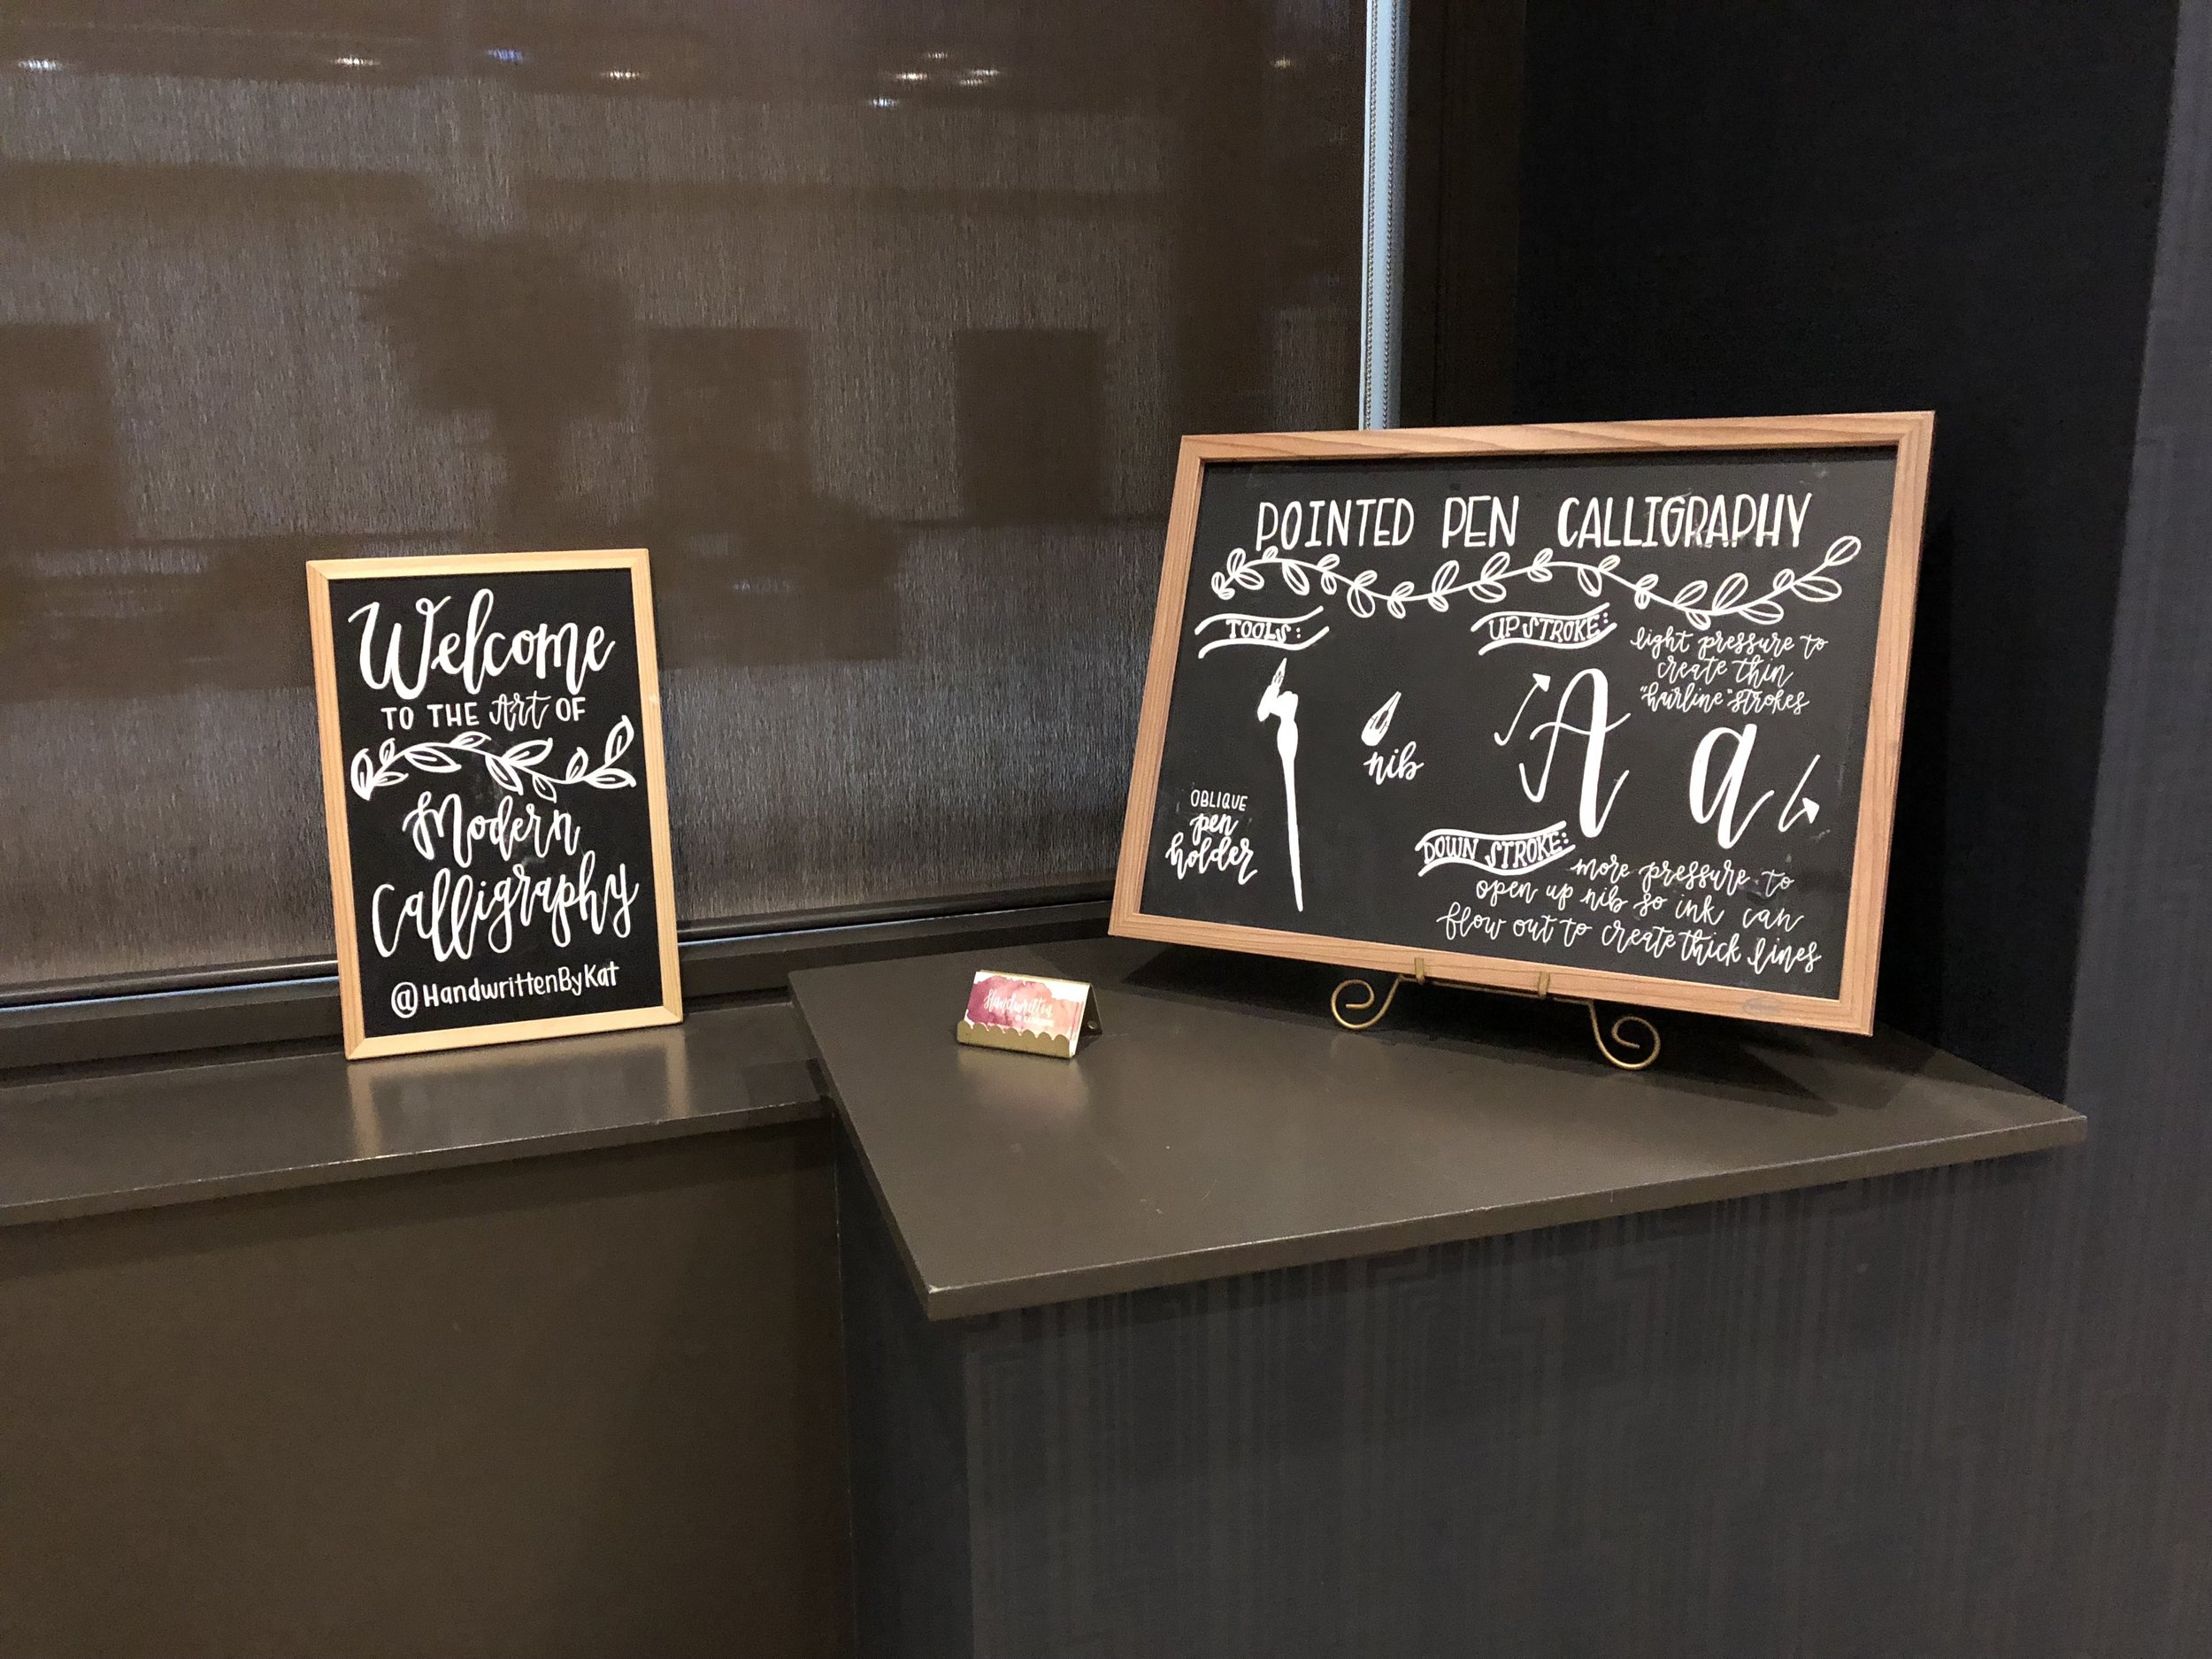 Welcome
TO THE Art OF
Modern
Calligraphy
@HandwrittenByKat
Handwritten
POINTED PEN CALLIGRAPHY
TOOLS:
OBLIQUE
pen
holder
nib
UP STROKE:
light pressure to
create thin
"hairline" strokes
A a
DOWN STROKE:
more pressure to
open up nib so ink can
flow out to create thick lines